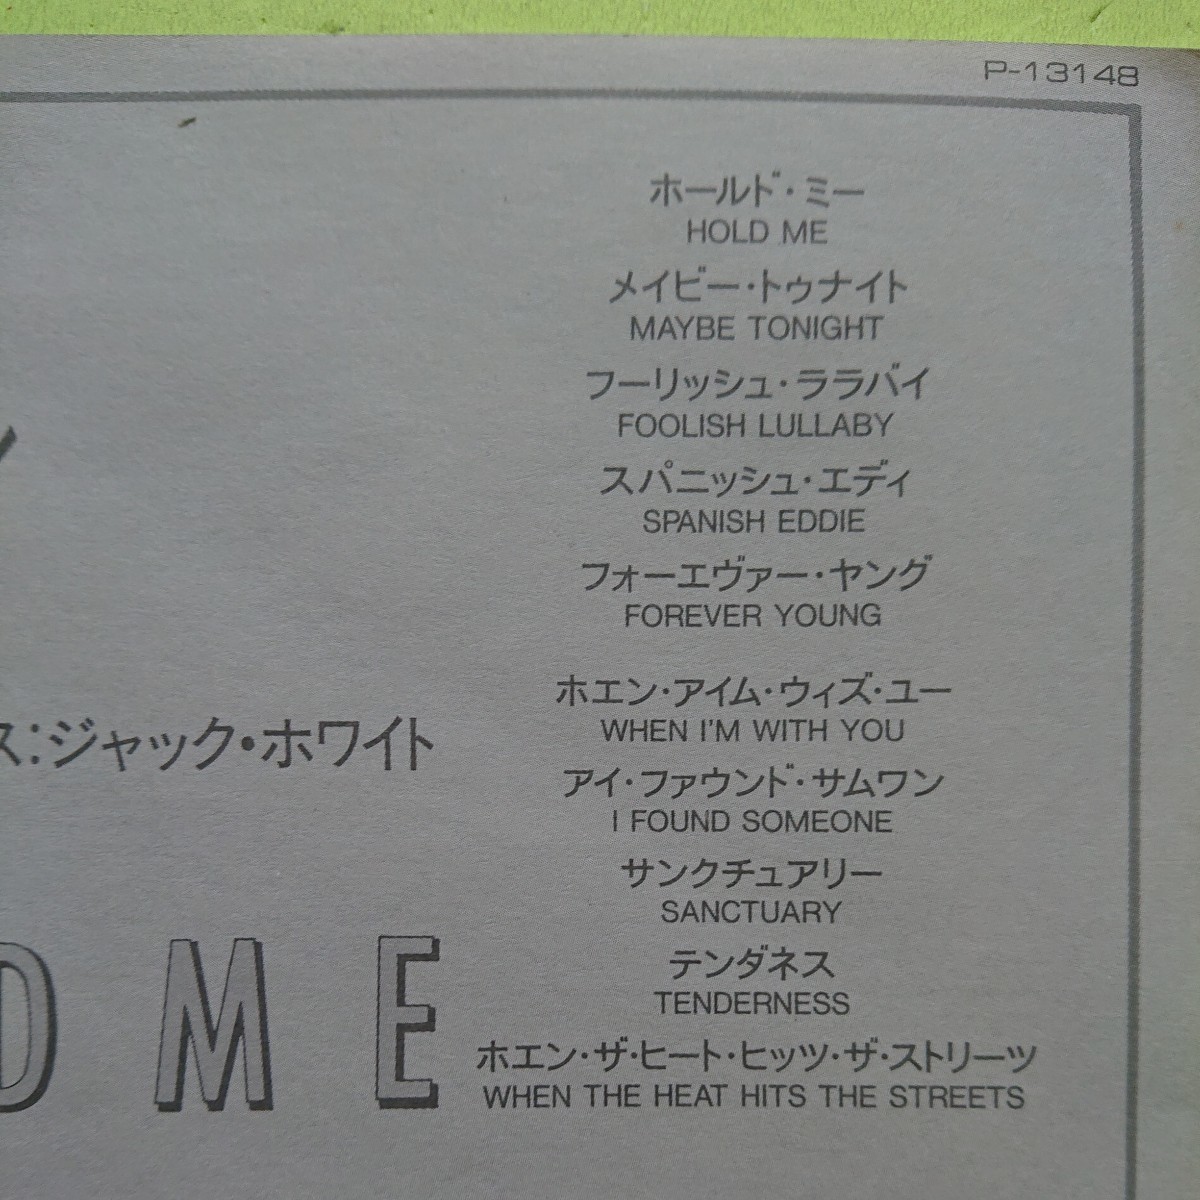 P-13148
ホールド・ミー
HOLD ME
メイビー・トゥナイト
MAYBE TONIGHT
フーリッシュ・ララバイ
FOOLISH LULLABY
スパニッシュ・エディ
SPANISH EDDIE
フォーエヴァー・ヤング
FOREVER YOUNG
ホエン・アイム・ウィズ・ユー
WHEN I'M WITH YOU
アイ・ファウンド・サムワン
I FOUND SOMEONE
サンクチュアリー
SANCTUARY
テンダネス
TENDERNESS
ホエン・ザ・ヒート・ヒッツ・ザ・ストリーツ
WHEN THE HEAT HITS THE STREETS
ス:ジャック・ホワイト
D ME